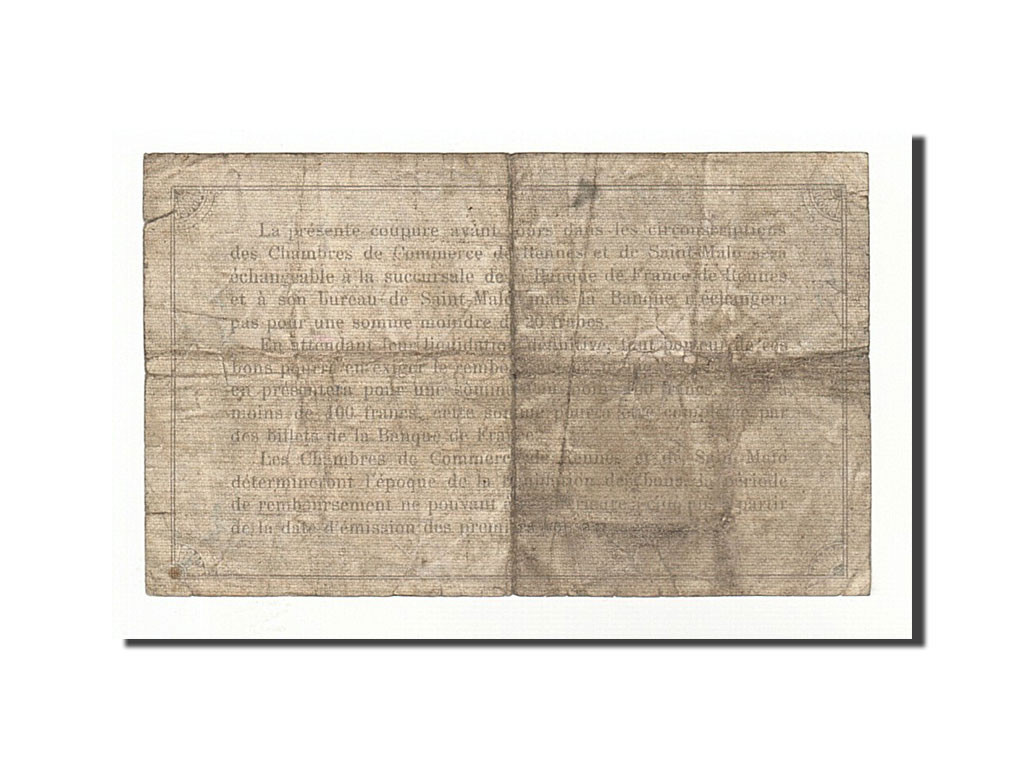 La présente coupure ayant cours dans les circonscriptions
des Chambres de Commerce de Rennes et de Saint-Malo sera
échangeable à la succursale de la Banque de France de Rennes
et à son bureau de Saint-Malo, mais la Banque n'échangera
pas pour une somme moindre de 20 francs.
En attendant leur liquidation définitive, tout porteur de ces
bons pourra en exiger le
en présentera pour une somme
moins de 100 francs, cette somme pourra être complétée par
des billets de la Banque de France.
Les Chambres de Commerce de Rennes et de Saint-Malo
détermineront l'époque de la des bons, la période
de remboursement ne pouvant partir
de la date d'émission des premiers